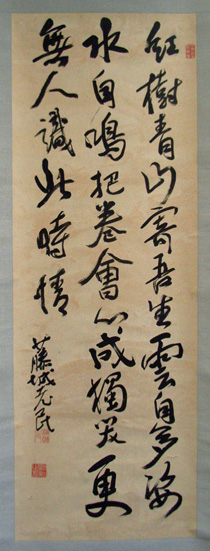 紅樹青山寄吾生雲自多姿
水自鳴把卷會心成獨笑更
無人識此時情
藤城老民